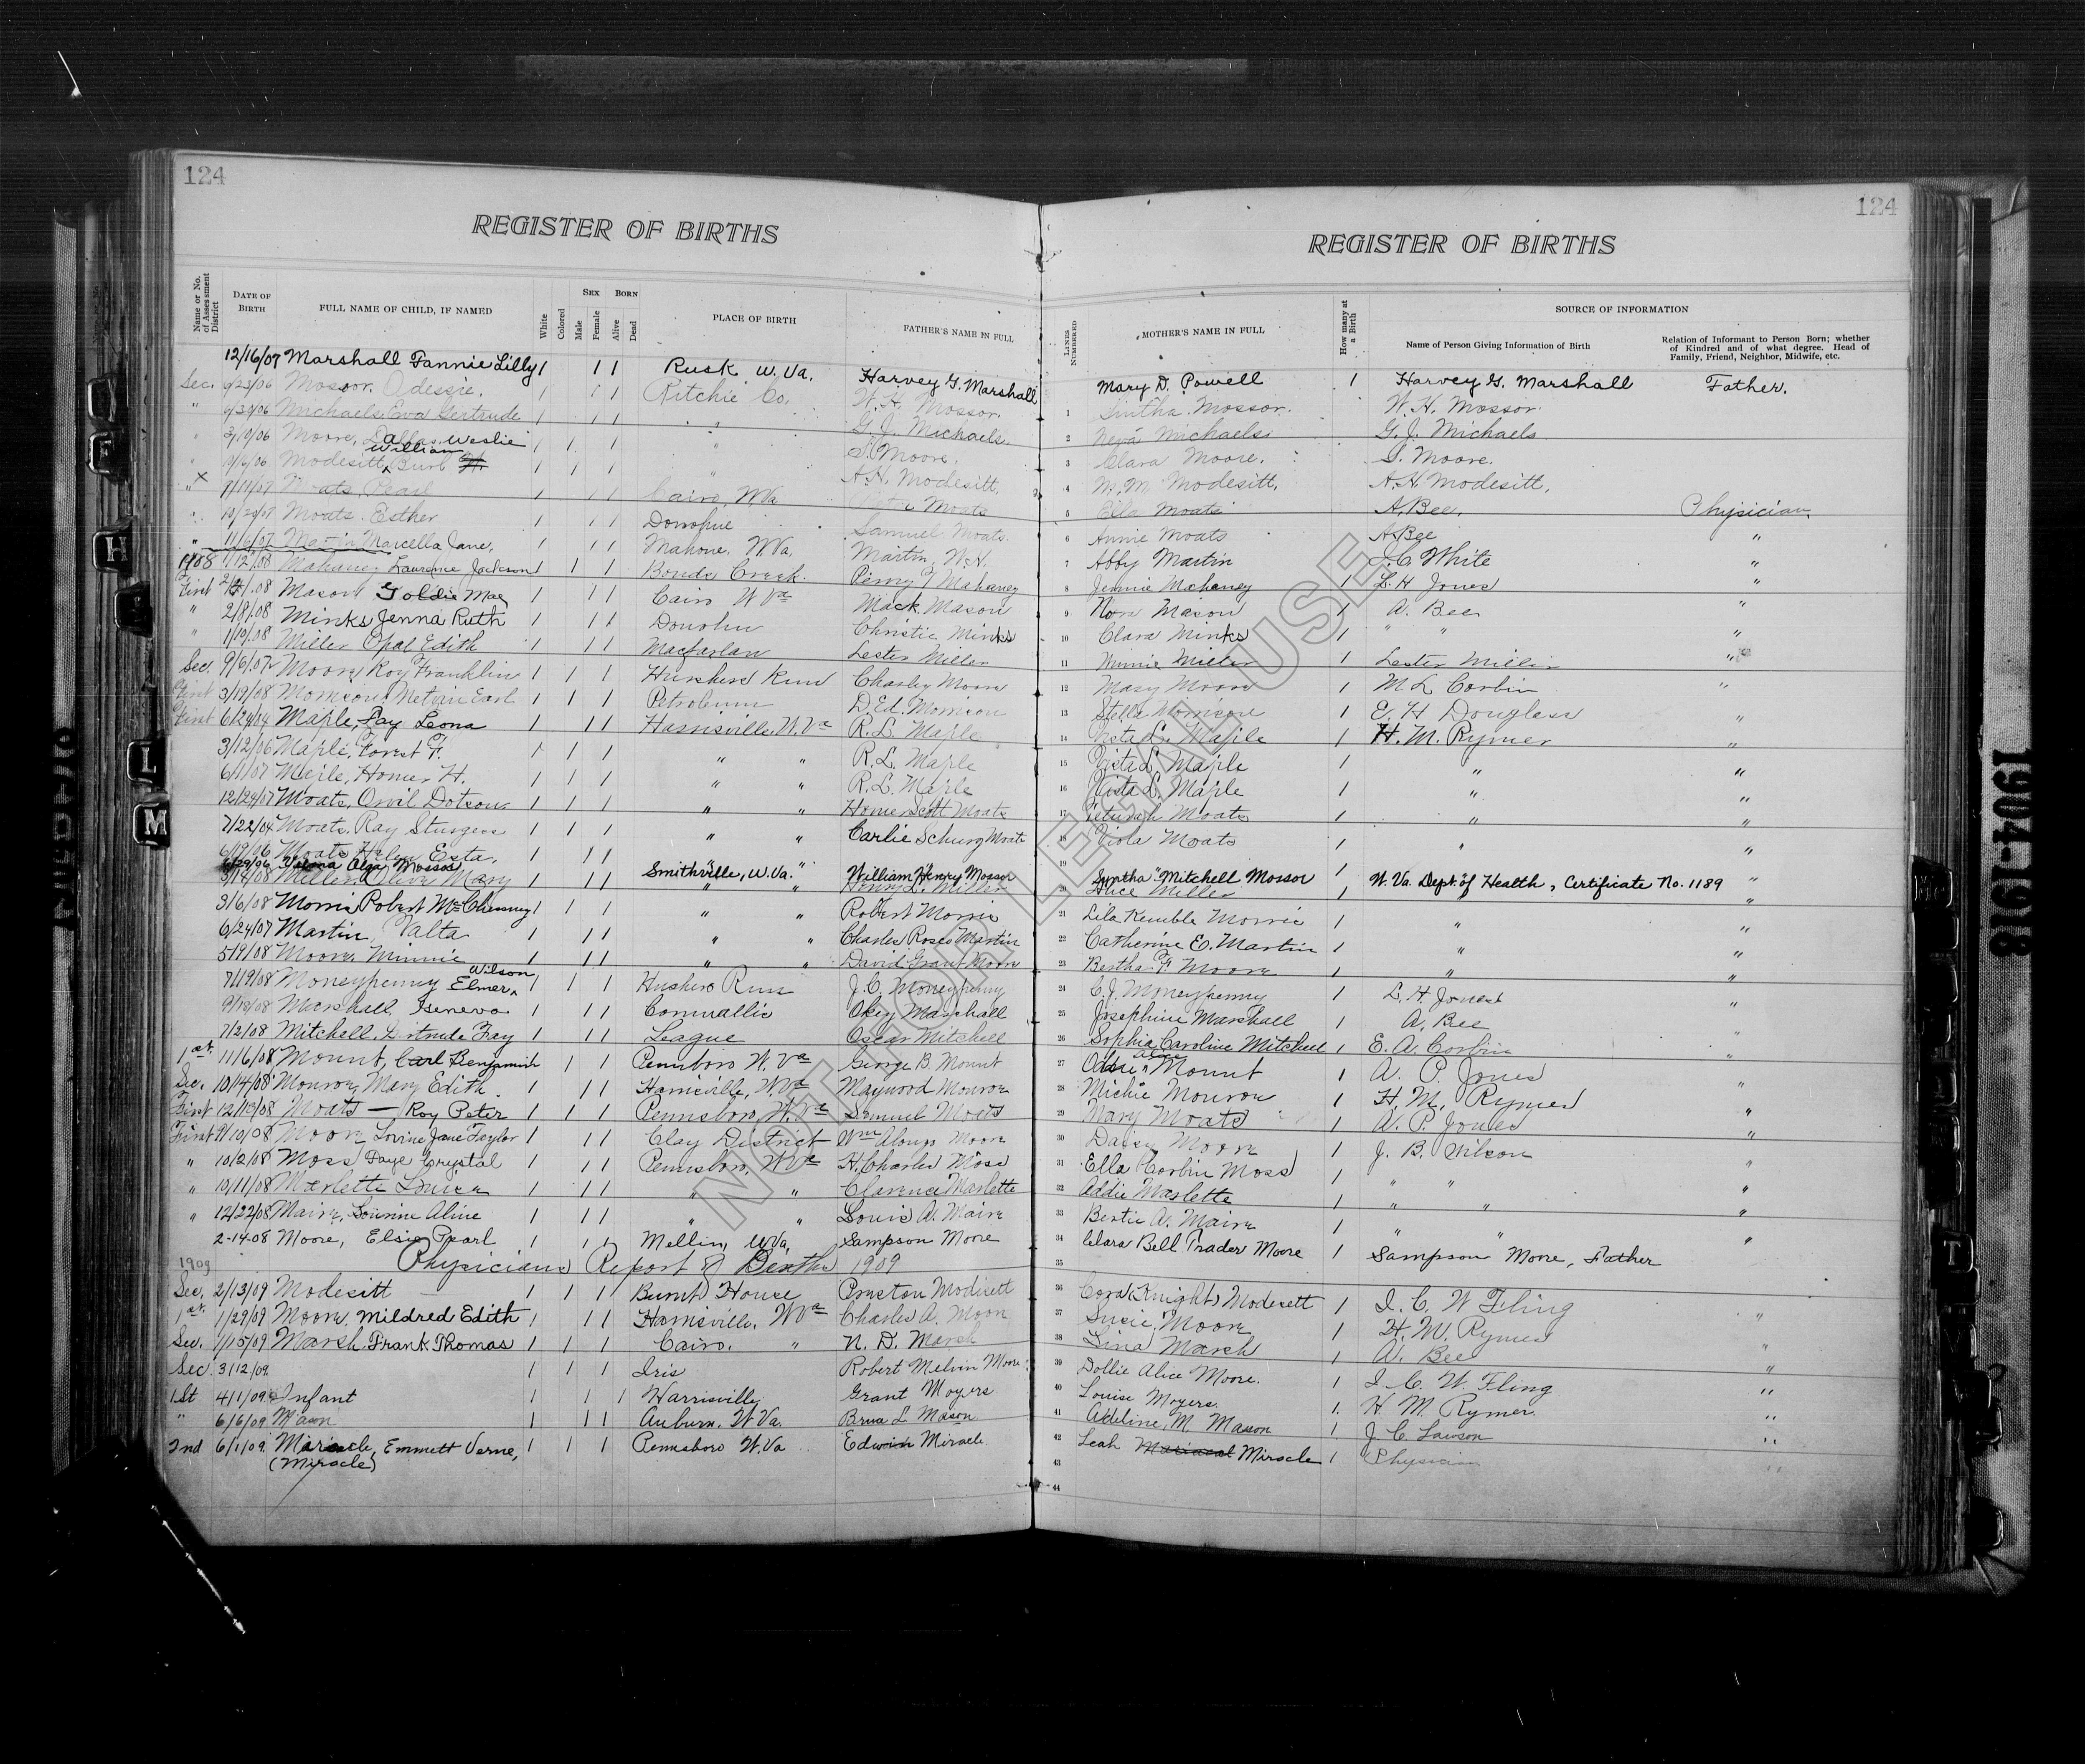 124
124
REGISTER OF BIRTHS
REGISTER OF BIRTHS
Name or No. of Assessment District
DATE OF BIRTH
FULL NAME OF CHILD, IF NAMED
White
Colored
SEX
Male
Female
BORN
Alive
Dead
PLACE OF BIRTH
FATHER'S NAME IN FULL
LINES NUMBERED
MOTHER'S NAME IN FULL
How many at a Birth
SOURCE OF INFORMATION
Name of Person Giving Information of Birth
Relation of Informant to Person Born; whether of Kindred and of what degree. Head of Family, Friend, Neighbor, Midwife, etc.
12/16/07 Marshall Fannie Lilly 1 1 1 Rusk W. Va. Harvey G. Marshall Mary D. Powell 1 Harvey G. Marshall Father.
Sec. 9/23/06 Mossor, Odessie, 1 1 1 Ritchie Co. W. H. Mossor. 1 Sintha Mossor. W. H. Mossor.
" 9/30/06 Michaels Eva Gertrude 1 1 1 " G. J. Michaels. 2 Neva Michaels G. J. Michaels
" 3/10/06 Moore, Dallas Weslie 1 1 1 S. Moore. 3 Clara Moore. S. Moore.
" Modesitt, William Burl 1 1 1 " A. H. Modesitt, 4 M. M. Modesitt, A. H. Modesitt,
" X Moats, Pearl 1 1 1 Cairo, W Va Moats 5 Ella Moats A. Bee. Physician
" 10/29/07 Moats Esther 1 1 1 Donohue Samuel Moats. 6 Annie Moats A Bee "
" 11/6/07 Martin Marcella Jane, 1 1 1 Mahone, W Va, Martin, W. H. 7 Abby Martin J. C. White "
1908 1/12/08 Mahaney Laurence Jackson 1 1 1 Bonds Creek. Perry F Mahaney 8 Jennie Mahaney 1 L. H Jones "
First Mason Goldie Mae 1 1 1 Cairo W Va Mack Mason 9 Nora Mason 1 A. Bee "
" 2/8/08 Minks Jenna Ruth 1 1 1 Donohue Christie Minks 10 Clara Minks 1 " " "
" 1/19/08 Miller Opal Edith 1 1 1 Macfarlan Lester Miller 11 Winnie Miller 1 Lester Miller "
Sec. 9/6/07 Moore Roy Franklin 1 1 1 Hushers Run Charley Moore 12 Mary Moore 1 M L Corbin "
First 3/19/08 Morrison 1 1 1 Petroleum D. Ed. Morrison 13 Stella Morrison 1 E. H Douglass "
First 6/29/04 Maple, Fay Leona 1 1 1 Harrisville, W. Va R. L. Maple 14 Vista L. Maple 1 H. M. Rymer "
3/12/06 Maple, Forest F. 1 1 1 " " R. L. Maple 15 Vista L. Maple 1 " "
6/1/07 Maple, Homer H. 1 1 1 " " R. L. Maple 16 Vista L. Maple 1 " "
12/24/07 Moats, Orvil Dotson 1 1 1 " " Homer Scott Moats 17 Moats 1 " "
7/22/04 Moats, Ray Sturgess 1 1 1 " " Carlie Schurg Moats 18 Viola Moats 1 " "
6/19/06 Moats Helen Esta, 1 1 1 " " 19 1 "
6/29/06 Velma Olga Mossor Smithville, W. Va. William Henry Mossor Syntha Mitchell Mossor W. Va. Dept. of Health, Certificate No. 1189
3/14/08 Miller, Olive Mary 1 1 1 " " Henry L. Miller 20 Alice Miller 1 "
3/6/08 Morris Robert McChesney 1 1 1 " " Robert Morris 21 Lila Kemble Morris 1 " "
6/24/07 Martin, Valta 1 1 1 " " Charles Roses Martin 22 Catherine E. Martin 1 " "
5/9/08 Moore, Minnie 1 1 1 " " David Grant Moore 23 Bertha F. Moore 1 " "
7/19/08 Moneypenny Elmer Wilson 1 1 1 Hushers Run J. C. Moneypenny 24 C. J. Moneypenny 1 L. H. Jones "
9/19/08 Marshall, Geneva 1 1 1 Cornwallis Okey Marshall 25 Josephine Marshall 1 A. Bee "
7/2/08 Mitchell, Gertrude Fay 1 1 1 League Oscar Mitchell 26 Sophia Caroline Mitchell 1 E. A. Corbin "
1st 11/6/08 Mount, Carl Benjamin 1 1 1 Pennsboro W. Va George B. Mount 27 Mount 1 A. P. Jones "
Sec. 10/14/08 Monroe, Mary Edith 1 1 1 Harrisville, W. Va Maywood Monroe 28 Michie Monroe 1 H. M. Rymer "
First 12/19/08 Moats — Roy Peter 1 1 1 Pennsboro, W. Va Samuel Moats 29 Mary Moats 1 A. P. Jones "
First 9/10/08 Moore Lovine Jane Taylor 1 1 1 Clay District Wm Alonzo Moore 30 Daisy Moore 1 J. B. Wilson "
" 10/2/08 Moss Faye Crystal 1 1 1 Pennsboro, W Va H. Charles Moss 31 Ella Corbin Moss 1 " " "
" 10/11/08 Marlette Louisa 1 1 1 " " Clarence Marlette 32 Addie Marlette 1 " " "
" 12/22/08 Mairs, Lourine Aline 1 1 1 " " Louis A. Mairs 33 Bertie A. Mairs 1 " " "
2-14-08 Moore, Elsie Pearl 1 1 1 Mellin, W Va, Sampson Moore 34 Clara Bell Trader Moore 1 Sampson Moore, Father
1909 Physicians Report of Births 1909 35
Sec. 2/13/09 Modesitt — 1 1 1 Burnt House Preston Modisett 36 Cora (Knight) Modesett 1 I. C. W Fling "
1st. 1/29/09 Moore, Mildred Edith 1 1 1 Harrisville, W Va Charles A. Moore 37 Susie Moore 1 H. M. Rymer "
Sec. 1/15/09 Marsh Frank Thomas 1 1 1 Cairo. " N. D. Marsh 38 Lina Marsh 1 A. Bee "
Sec. 3/12/09. 1 1 1 Iris Robert Melvin Moore. 39 Dollie Alice Moore. 1 I. C. W. Fling "
1st 4/1/09 Infant 1 1 1 Harrisville Grant Moyers 40 Louise Moyers. 1. H. M. Rymer. "
" 6/6/09 Mason 1 1 1 Auburn. W Va. L Mason 41 Adeline, M. Mason 1 J. C. Lawson "
2nd 6/1/09. Maricle, Emmett Verne, 1 1 1 Pennsboro W. Va Edwin Miracle 42 Leah Miracle 1 Physician "
(Miracle)
43
44
NOT FOR LEGAL USE
H
L
M
T